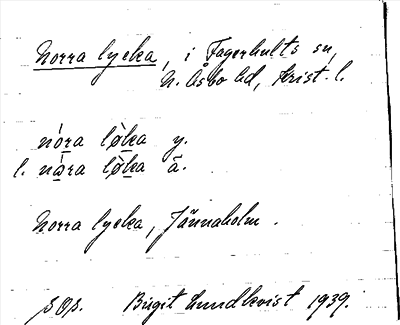 Norra lycka, i Fagerhults sn,
N. Åsbo hd, Krist. l.
nȯra lø̀ka y.
l. nȧra lø̀ka ä.
Norra lycka, Jännaholm.
sOs. Birgit Lundkvist 1939.